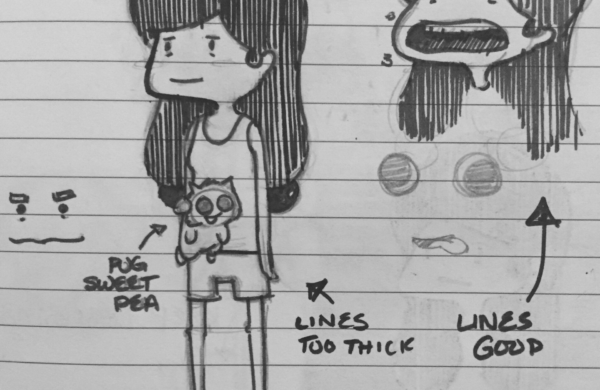 3
PUG
SWEET
PEA
LINES
TOO THICK
LINES
GOOD